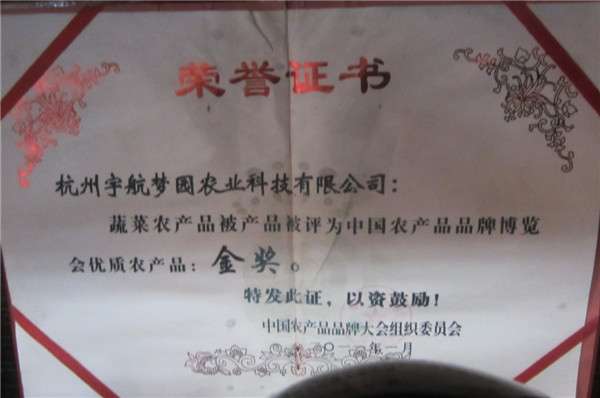 荣誉证书
杭州宇航梦园农业科技有限公司：
蔬菜农产品被产品被评为中国农产品品牌博览
会优质农产品：金奖。
特发此证，以资鼓励！
中国农产品品牌大会组织委员会
〇一一年一月